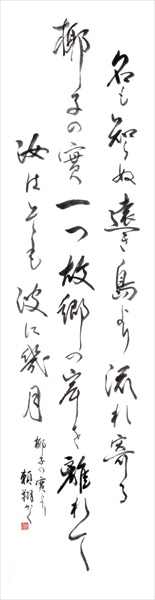 名も知らぬ遠き島より流れ寄る
椰子の實一つ故郷の岸を離れて
汝はそも波に幾月
椰子の實より
頼翔かく